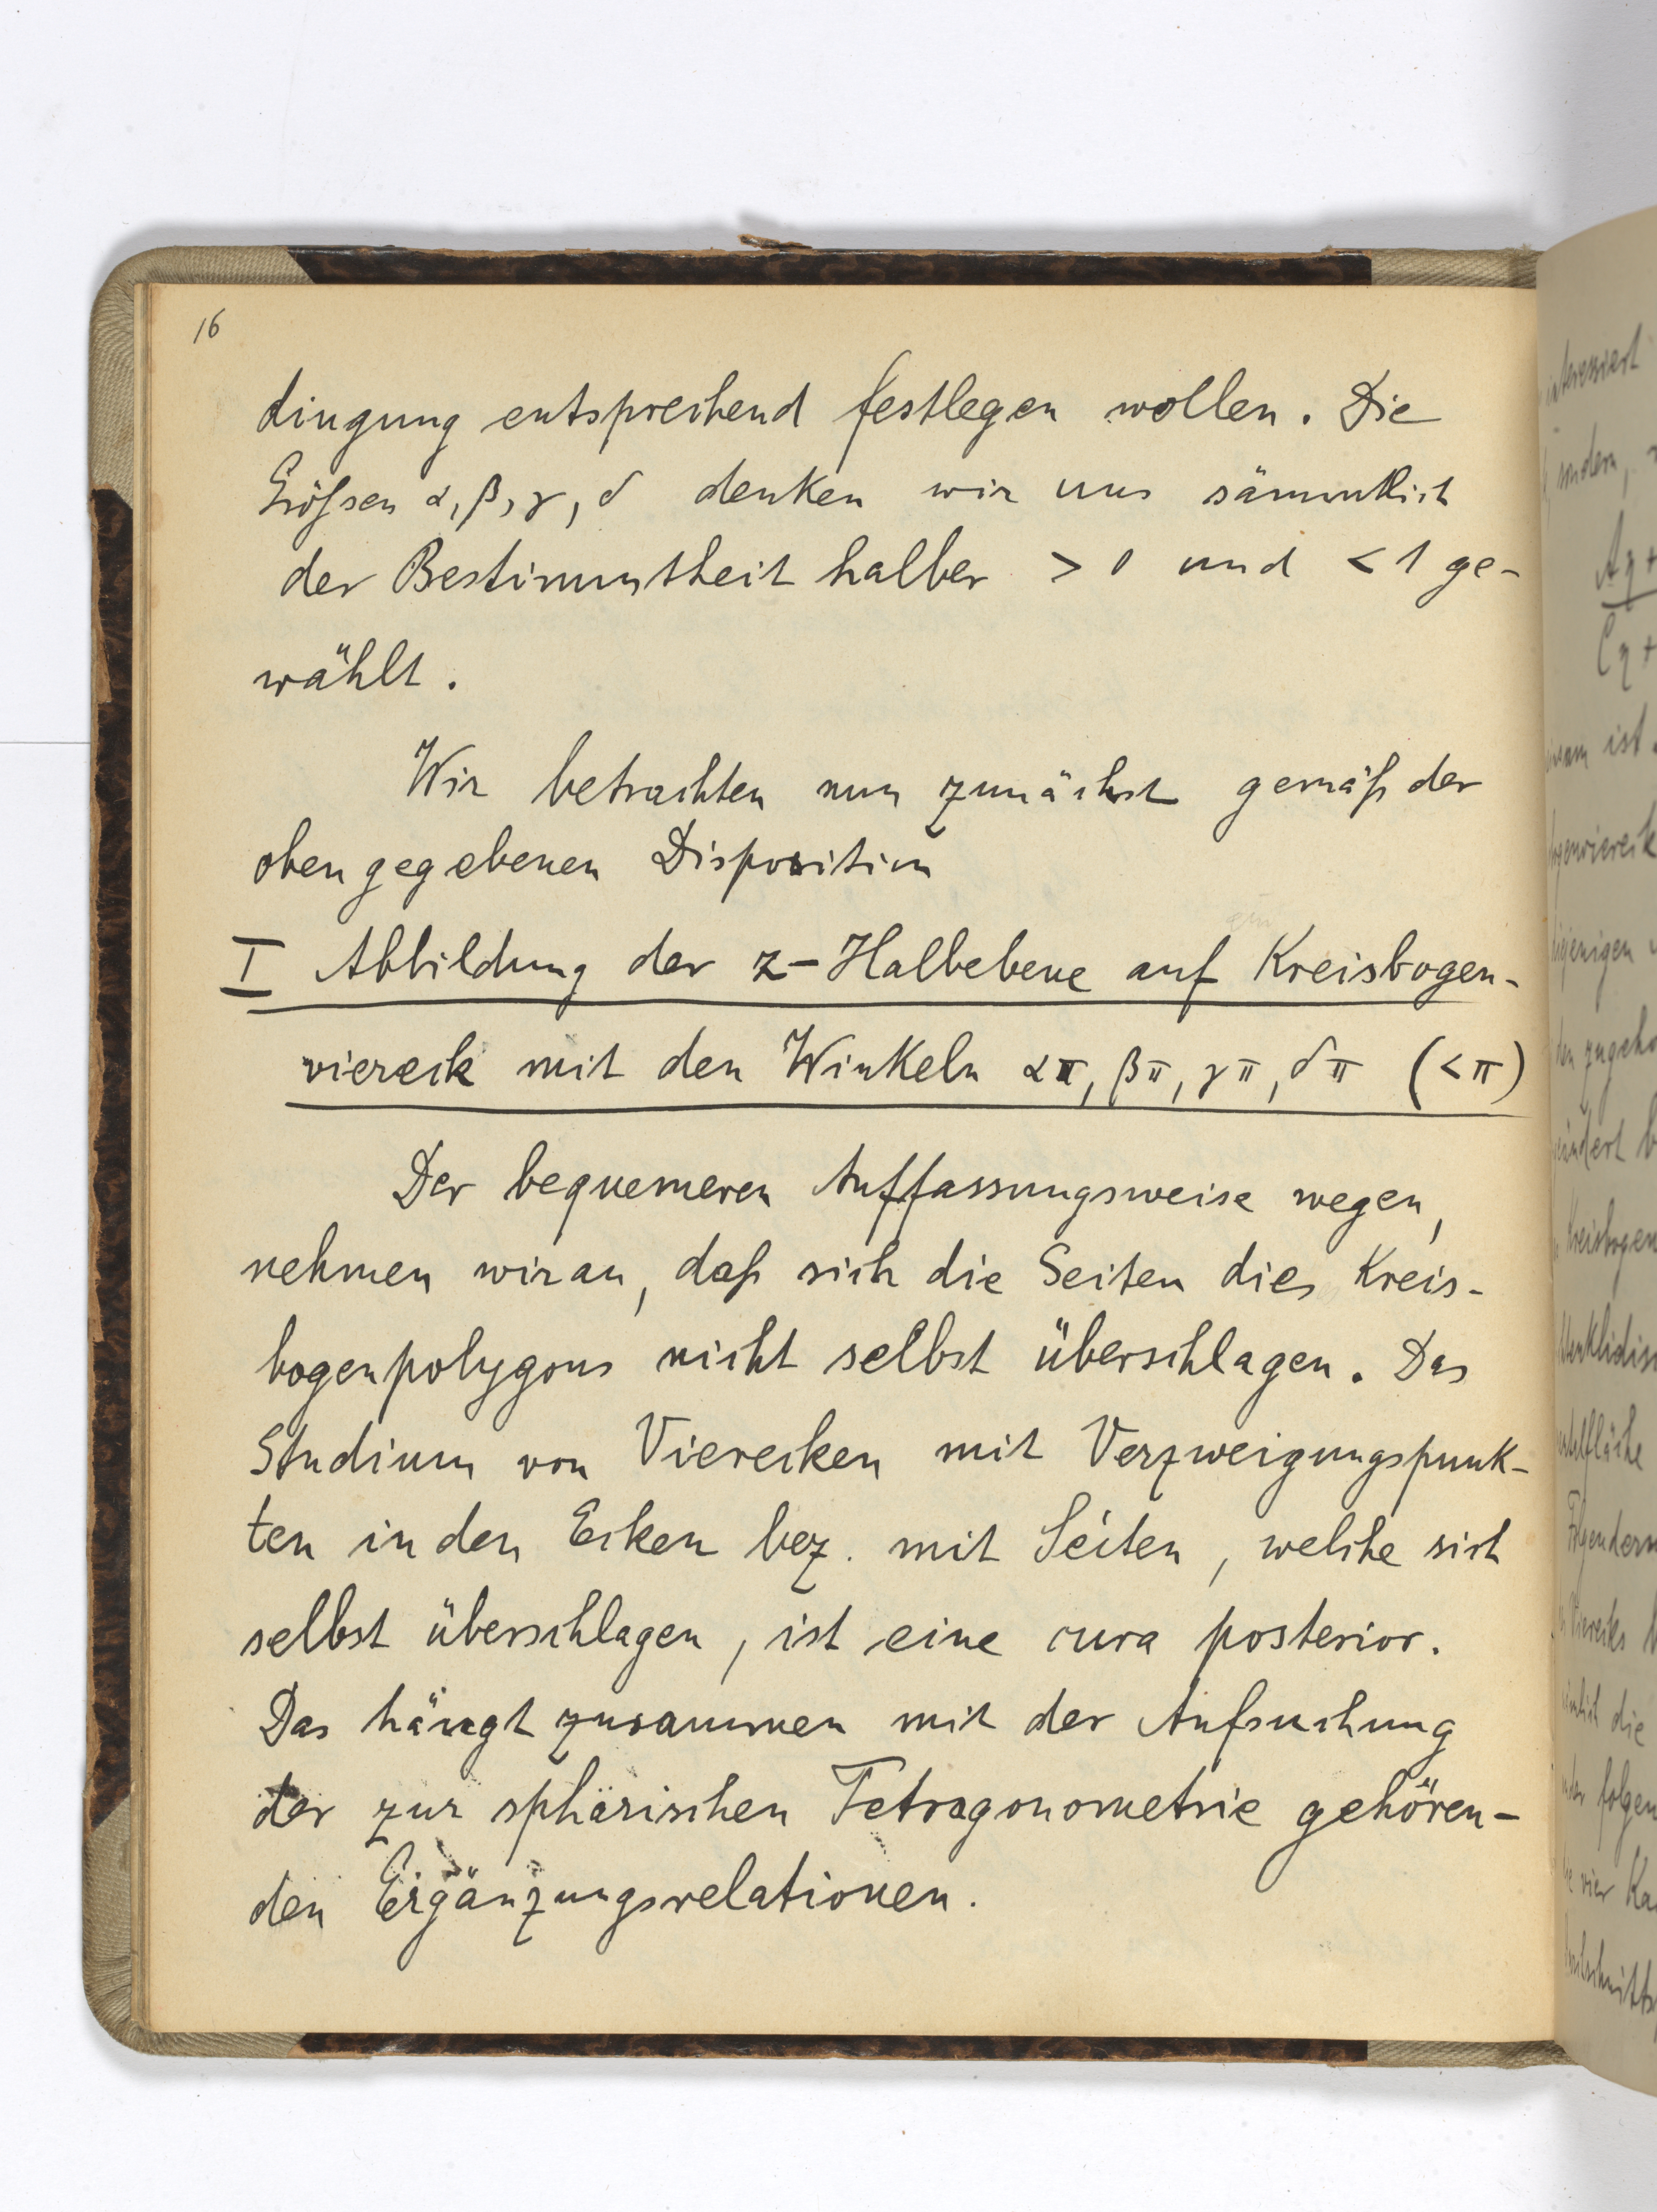 16
dingung entsprechend festlegen wollen. Die
Größsen α, β, γ, δ denken wir uns sämmtlich
der Bestimmtheit halber > 0 und < 1 ge-
wählt.
Wir betrachten nun zunächst gemäß der
oben gegebenen Disposition
I Abbildung der z-Halbebene auf Kreisbogen-
viereck mit den Winkeln απ, βπ, γπ, δπ (<π)
Der bequemeren Auffassungsweise wegen,
nehmen wir an, daß sich die Seiten dies Kreis-
bogenpolygons nicht selbst überschlagen. Das
Studium von Vierecken mit Verzweigungspunk-
ten in den Ecken bez. mit Seiten, welche sich
selbst überschlagen, ist eine cura posterior.
Das hängt zusammen mit der Aufsuchung
der zur sphärischen Tetragonometrie gehören-
den Ergänzungsrelationen.
interessiert
sondern,
Aη+
Cη+
ist.
diejenigen
Kreisbogen
die
folgen
vier Ka